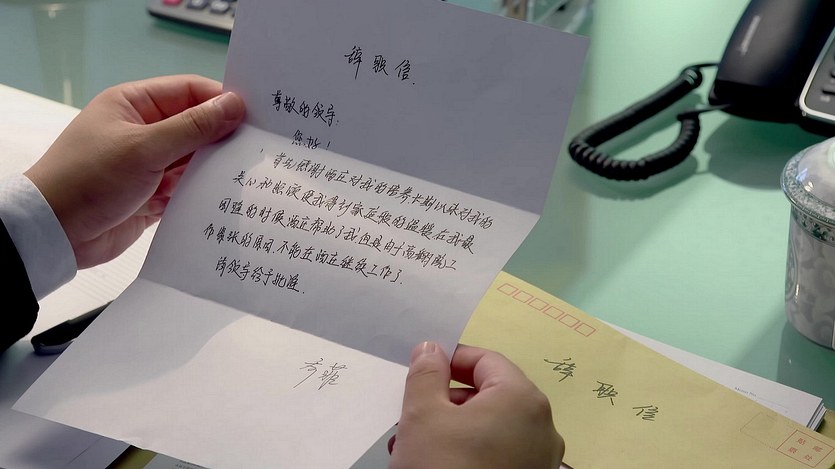 辞职信.
尊敬的领导:
您好!
首先感谢酒庄对我的培养
关心和照顾使我得到家庭般的温暖在我最
困难的时候酒庄帮助了我但是由于
的原因.不能在酒庄继续工作了.
请领导给予批准.
辞职信
贴 邮
票 处